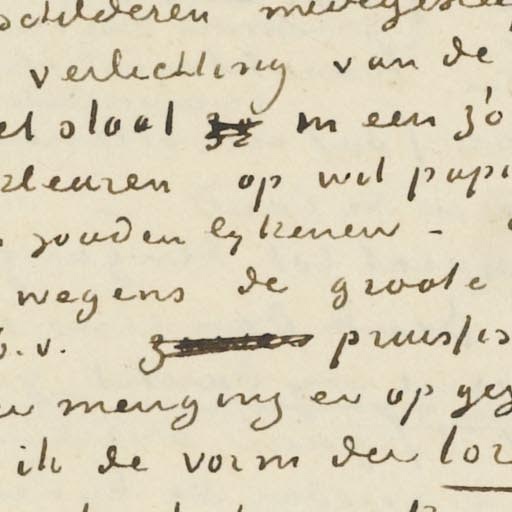 schilderen
verlichting van de
et staat in een zo
kleuren op wit papi
zouden lijkenen -
wegens de groote
b.v. pruisis
menging en op ges
ik de vorm der